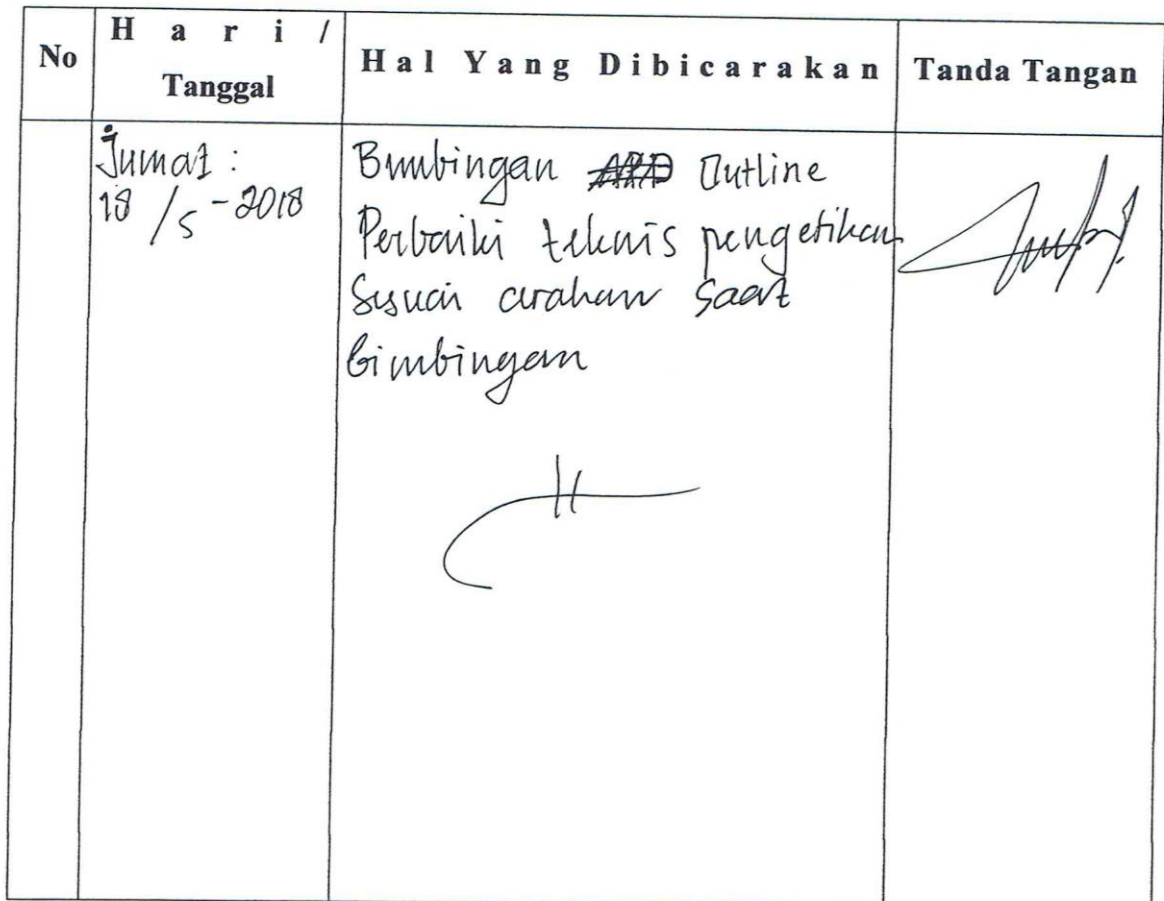 No
H a r i /
Tanggal
Hal Yang Dibicarakan
Tanda Tangan
Jumat :
18 /5 - 2018
Bimbingan Outline
Perbaiki teknis pengetikan
Sesuai arahan saat
bimbingan